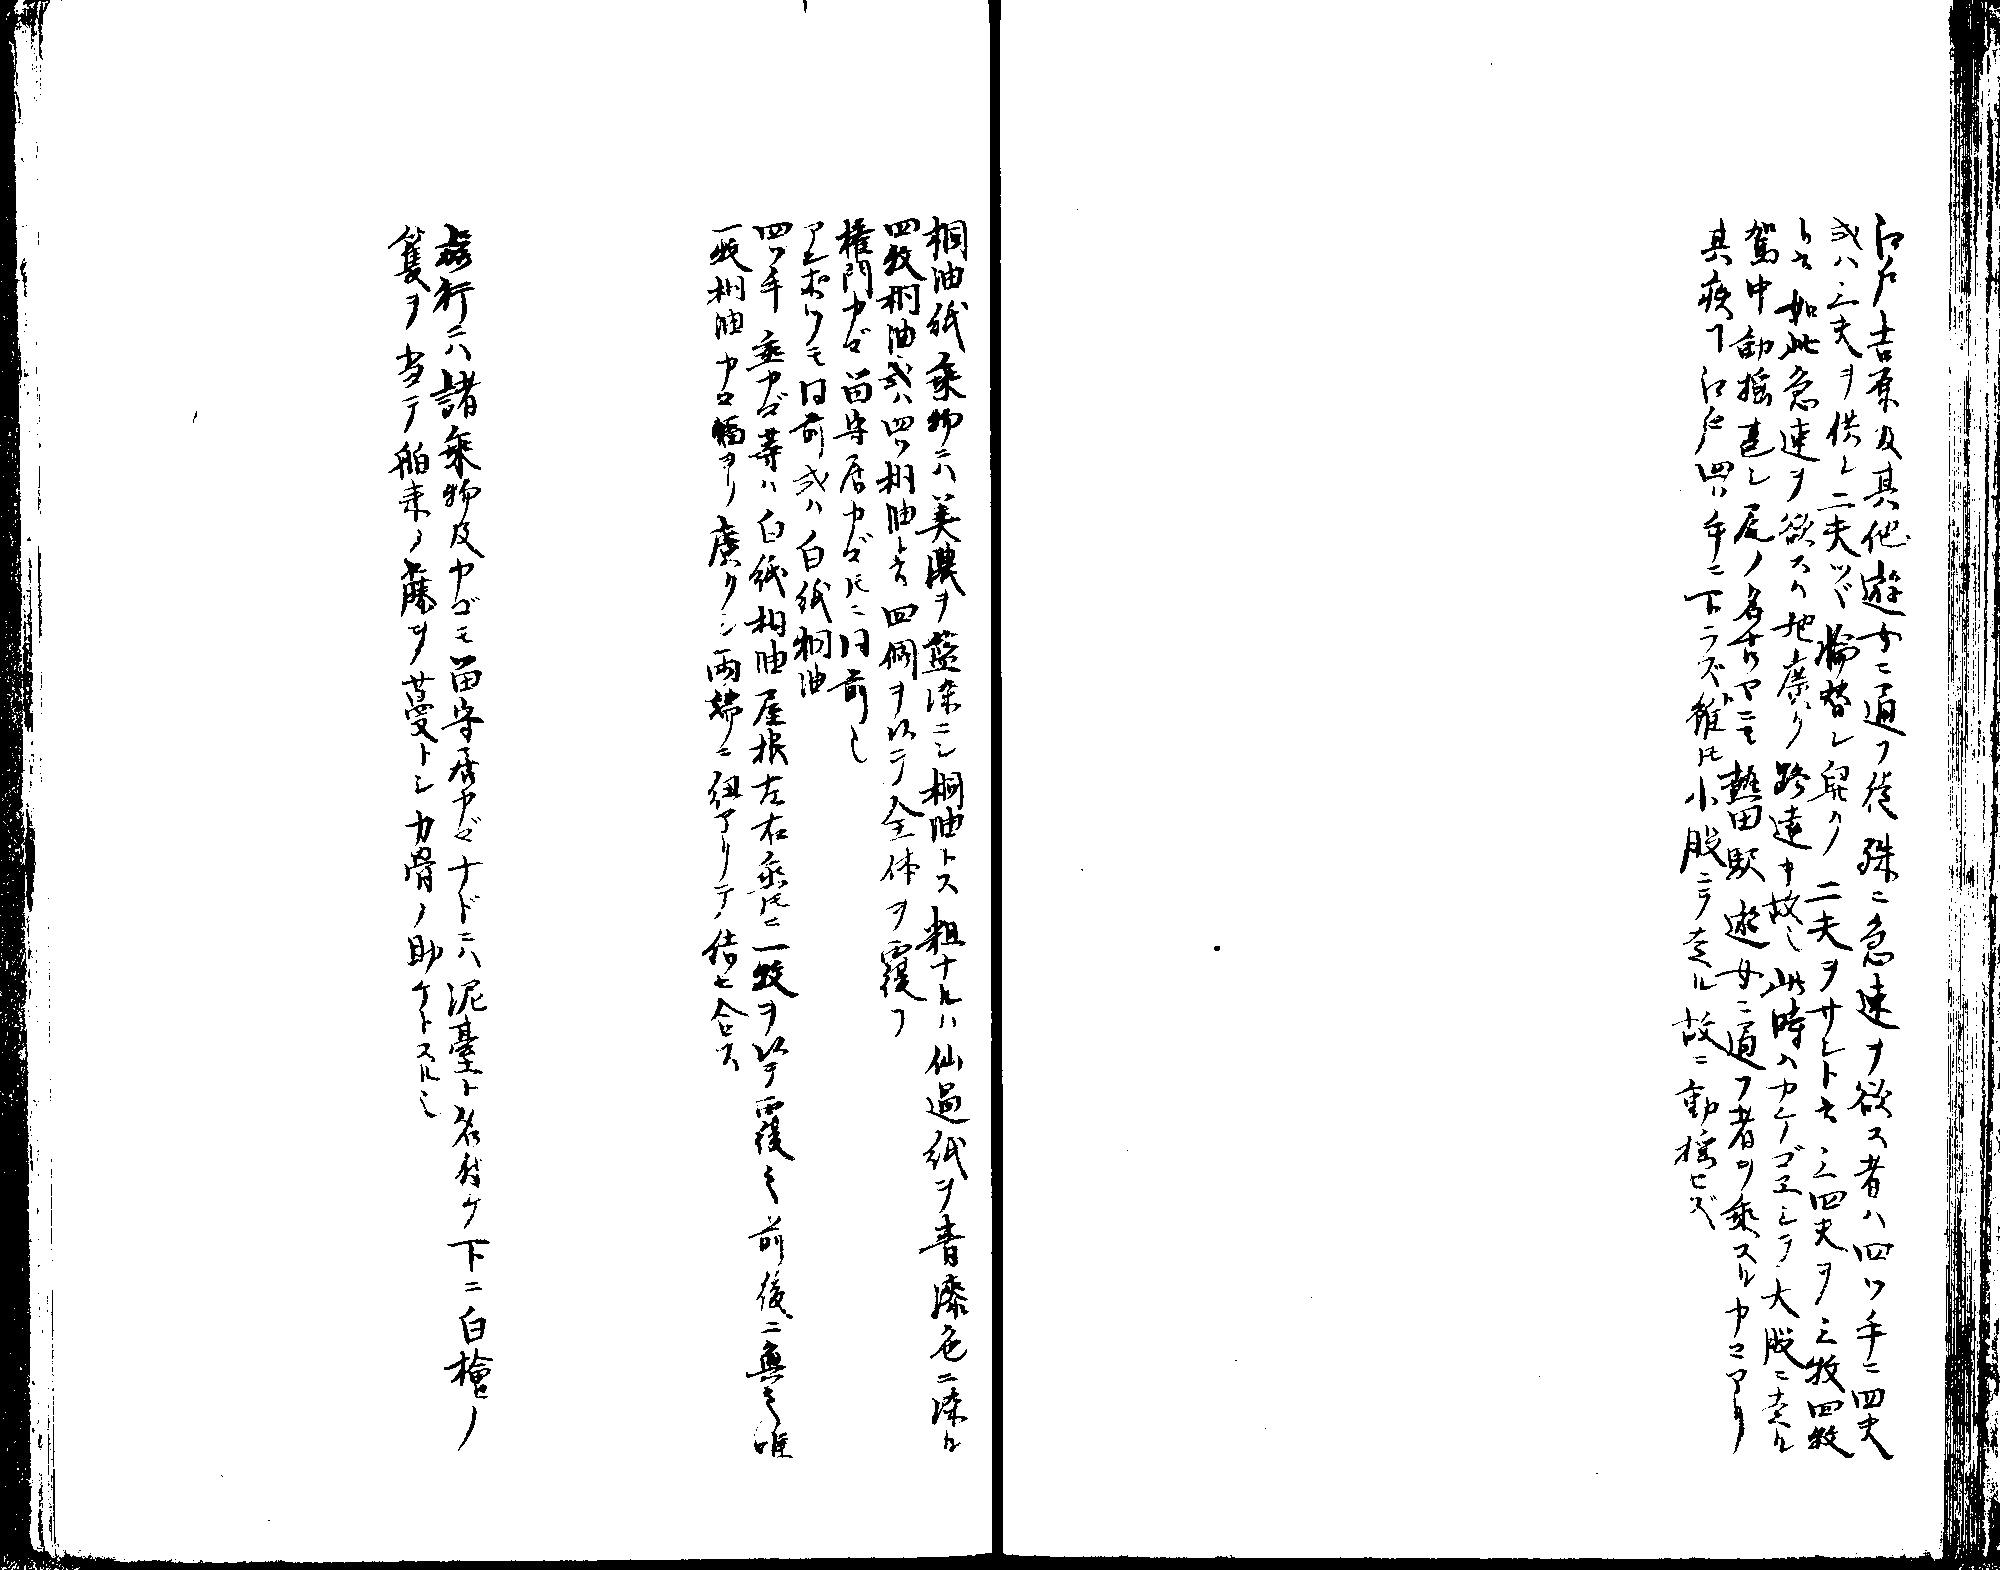 江戸吉原及其他遊女ニ通フ徒殊ニ急速ヲ欲ス者ハ四ツ手ニ四夫
或ハ三夫ヲ供シ二夫ヅヽ輪替シ舁ク二夫ヲ サントモ三四夫ヲ三枚四枚
ト云如此急速ヲ欲スハ地廣ク路遠キ故也此時ハカケゴヱシテ大股ニ走ル
駕中動揺甚シ尾ノ名古ヤニモ熱田駅遊女ニ通フ者ヲ乗スルカゴアリ
其疾コト江戸四ツ手ニ下ラズ雖トモ小股ニテ走ル故ニ動揺セズ
桐油紙乗物ニハ美濃ヲ藍染ニシ桐油トス粗ナルハ仙過紙ヲ青漆色ニ染ル
四枚桐油或ハ四ツ桐油ト云四個ヲ以テ全体ヲ覆フ
権門カゴ留守居カゴトモニ同前也
アンポツモ同前或ハ白紙桐油
四ツ手垂カゴ等ハ白紙桐油屋根左右垂トモニ一枚ヲ以テ覆之前後ニ無之唯
一枚桐油ヤロ幅ヨリ廣クシ両端ニ紐アリテ結ヒ合ス
旅行ニハ諸乗物及カゴモ留守居カゴナドニハ泥臺ト名付ケ下ニ白檜ノ
簀ヲ当テ舶来ノ藤ヲ蔓トシ力骨ノ助ケトスル也